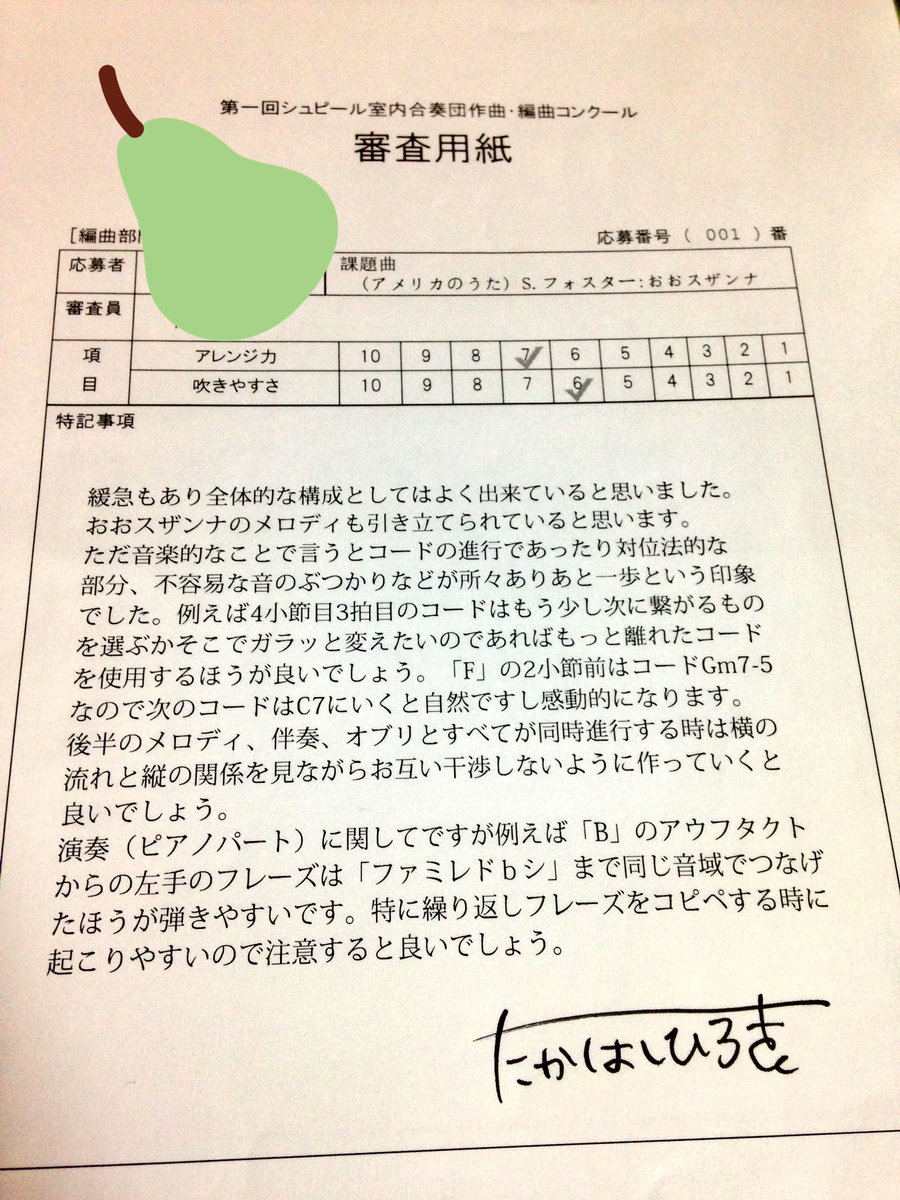 第一回シュピール室内合奏団作曲・編曲コンクール
審査用紙
[編曲部
応募番号（ 001 ）番
応募者
課題曲
（アメリカのうた）S.フォスター:おおスザンナ
審査員
項 アレンジ力 10 9 8 7 6 5 4 3 2 1
目 吹きやすさ 10 9 8 7 6 5 4 3 2 1
特記事項
緩急もあり全体的な構成としてはよく出来ていると思いました。
おおスザンナのメロディも引き立てられていると思います。
ただ音楽的なことで言うとコードの進行であったり対位法的な
部分、不容易な音のぶつかりなどが所々ありあと一歩という印象
でした。例えば4小節目3拍目のコードはもう少し次に繋がるもの
を選ぶかそこでガラッと変えたいのであればもっと離れたコード
を使用するほうが良いでしょう。「F」の2小節前はコードGm7-5
なので次のコードはC7にいくと自然ですし感動的になります。
後半のメロディ、伴奏、オブリとすべてが同時進行する時は横の
流れと縦の関係を見ながらお互い干渉しないように作っていくと
良いでしょう。
演奏（ピアノパート）に関してですが例えば「B」のアウフタクト
からの左手のフレーズは「ファミレドｂシ」まで同じ音域でつなげ
たほうが弾きやすいです。特に繰り返しフレーズをコピペする時に
起こりやすいので注意すると良いでしょう。
たかはしひろき